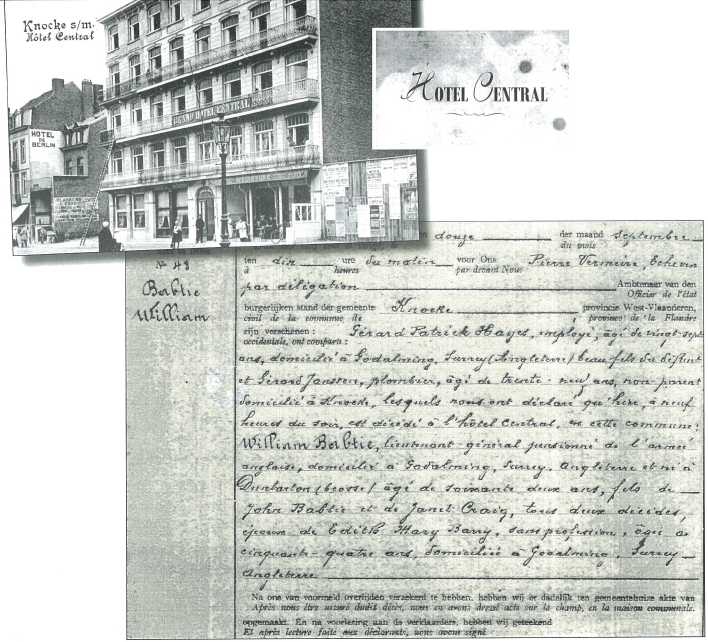 Knocke s/m.
Hôtel Central
HOTEL
DE
BERLIN
GRAND HOTEL CENTRAL
HOTEL CENTRAL
douze der maand septembre
du mois
ten dix ure du matin voor Ons Pierre Vermeire, Echevin
à heures par devant Nous
par délégation Ambtenaar van den
Officier de l'état
burgerlijken stand der gemeente Knocke provincie West-Vlaanderen,
civil de la commune de province de la Flandre
zijn verschenen : Gérard Patrick Hayes, employé, âgé de vingt-sept
occidentale, ont comparu :
ans, domicilié à Godalming, Surrey (Angleterre) beau fils du défunt
et Gérard Janssen, plombier, âgé de trente-neuf ans, non parent
domicilié à Knocke, lesquels nous ont déclaré qu'hier, à neuf
heures du soir, est décédé à l'hôtel Central, en cette commune:
William Babtie, lieutenant-général pensionné de l'armée
anglaise, domicilié à Godalming, Surrey, Angleterre et né à
Dunbarton (Ecosse) âgé de soixante deux ans, fils de
John Babtie et de Janet Craig, tous deux décédés,
époux de Edith Mary Barry, sans profession, âgée de
cinquante-quatre ans, domiciliée à Godalming, Surrey
Angleterre
Na ons van voormeld overlijden verzekerd te hebben, hebben wij er dadelijk ten gemeentehuize akte van
Après nous être assuré dudit décès, nous en avons dressé acte sur le champ, en la maison communale.
opgemaakt. En na voorlezing aan de verklaarders, hebben wij geteekend
Et après lecture faite aux déclarants, nous avons signé
Nº 48
Babtie
William